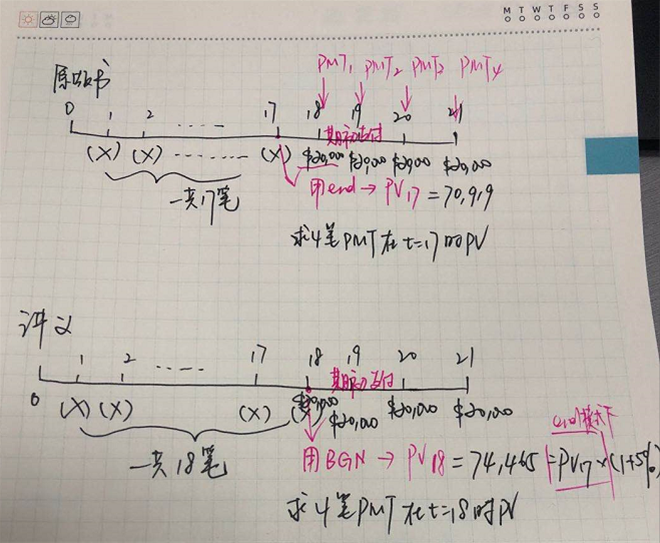 M T W T F S S
原版书
PMT₁ PMT₂ PMT₃ PMT₄
0 1 2 ...... 17 18 19 20 21
期初支付
(X) (X) ......... (X) $20,000 $20,000 $20,000 $20,000
一共17笔
用end → PV₁₇ = 70,919
求4笔PMT在t=17时PV
讲义
1 2 ..... 17 18 19 20 21
期初支付
0 (X) (X) (X) (X) $20,000 $20,000 $20,000 $20,000
一共18笔
end模式下
用BGN → PV₁₈ = 74,465 = PV₁₇ × (1+5%)
求4笔PMT在t=18时PV